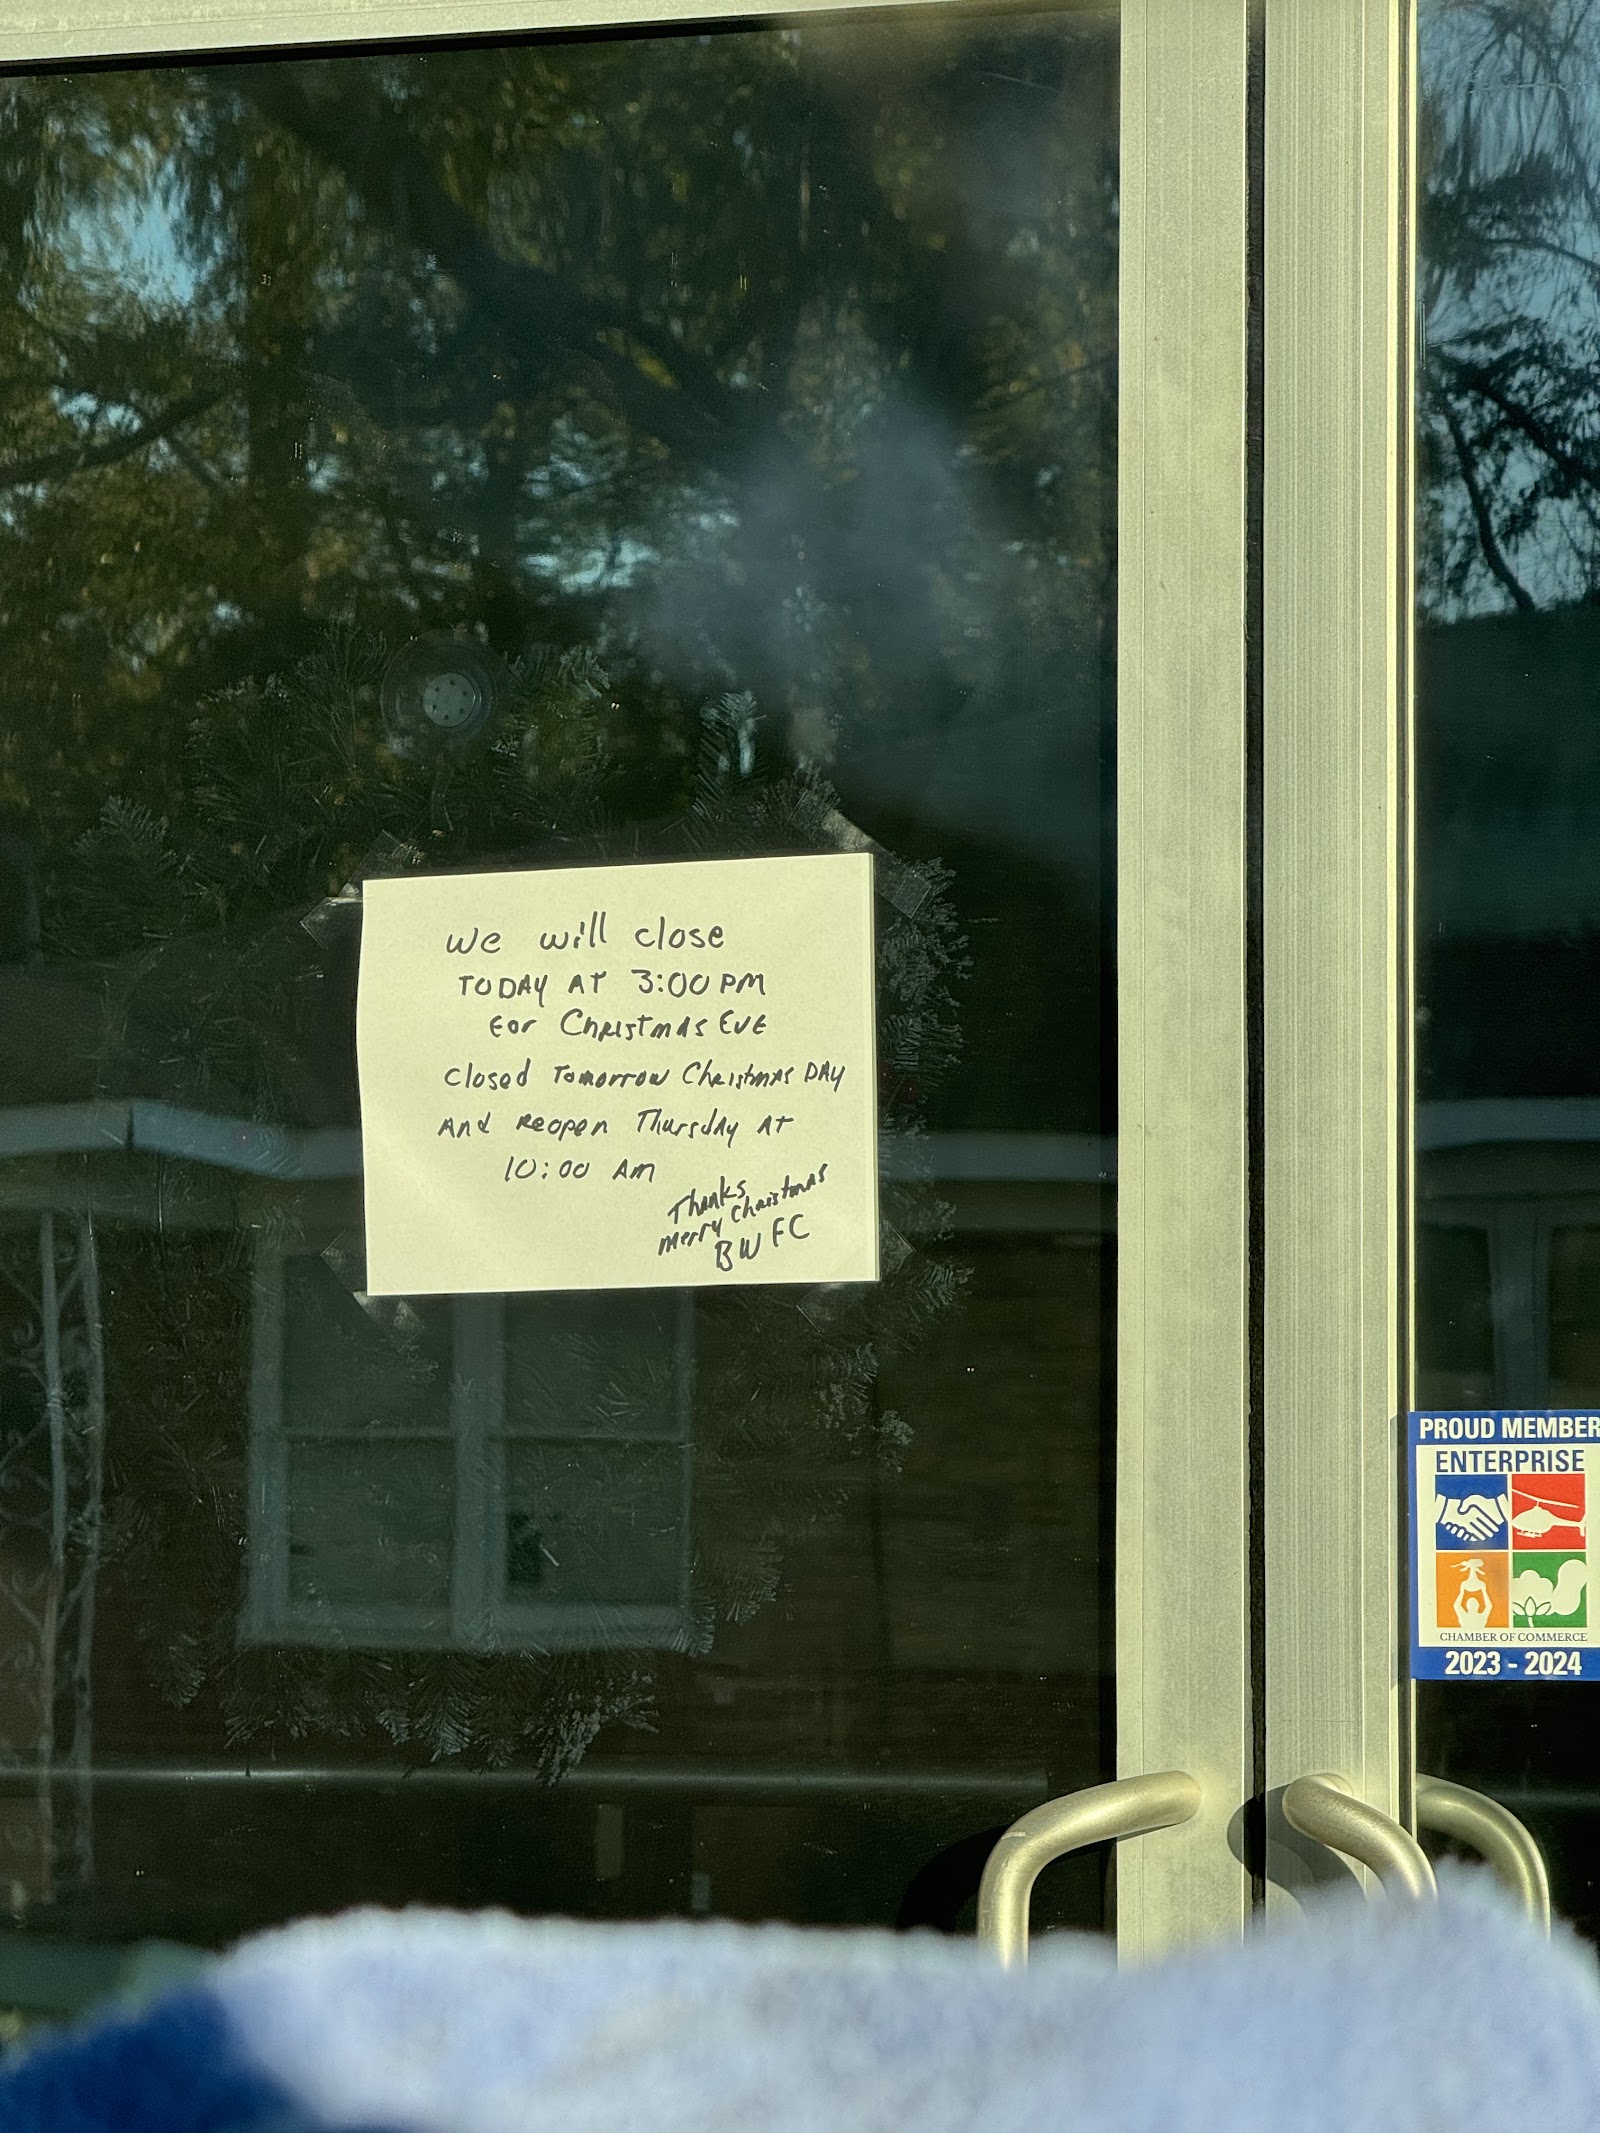 We will close
TODAY AT 3:00 PM
For Christmas Eve
Closed Tomorrow Christmas DAY
And Reopen Thursday AT
10:00 AM
Thanks
merry Christmas
BWFC
PROUD MEMBER
ENTERPRISE
CHAMBER OF COMMERCE
2023 - 2024